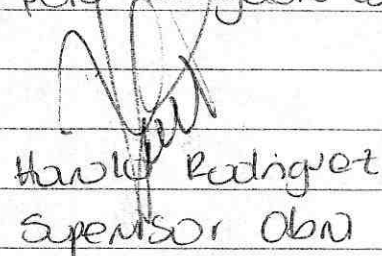 Harold Rodriguez
Supervisor Obra